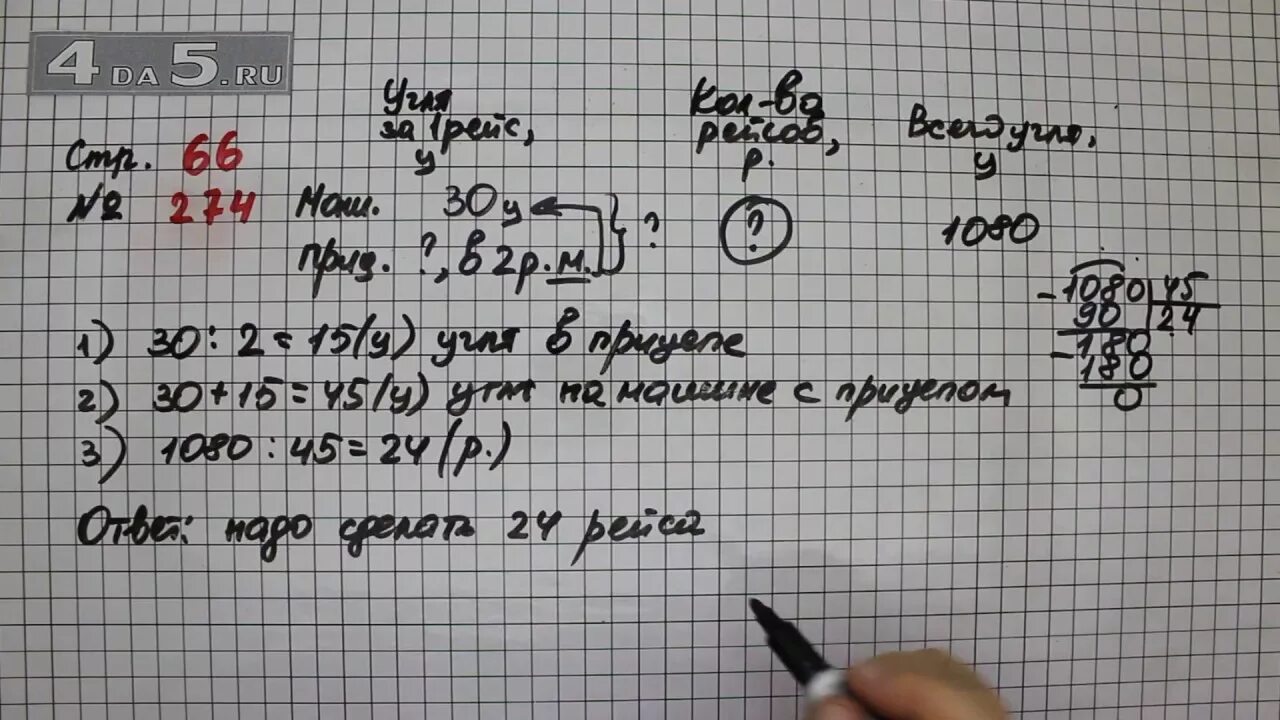 4DA5.RU
Стр. 66
№ 274
Угля
за 1рейс,
у
Кол-во
рейсов,
р.
Всего угля,
у
Маш. 30 у ?
Приц. ?, в 2 р. м.
?
1080
1) 30 : 2 = 15 (у) угля в прицепе
2) 30 + 15 = 45 (у) угля на машине с прицепом
3) 1080 : 45 = 24 (р.)
Ответ: надо сделать 24 рейса
- 1080 45
90 24
- 180
180
0